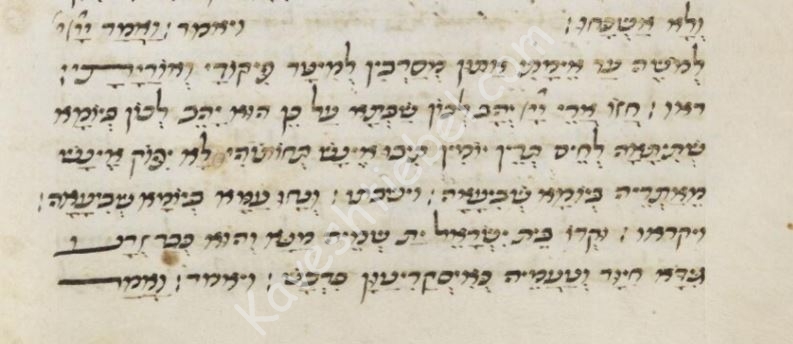 ולא אשכחו: ויאמר: ואמר ייי
למשה עד אימתי אתון מסרבין למיטר פיקודי
ראו: חזו ארי ייי יהב לכון שבתא על כן הוא יהב לכון ביומא
שתיתאה לחים תרין יומין תיבו אינש תחותוהי לא יפוק אינש
מאתריה ביומא שביעאה: וישבתו: ונחו עמא ביומא שביעאה:
ויקראו: וקרו בית ישראל ית שמיה מנא והוא כבר זרע
גידא חיור וטעמיה כאיסקריטון בדבש: ויאמר: ואמר